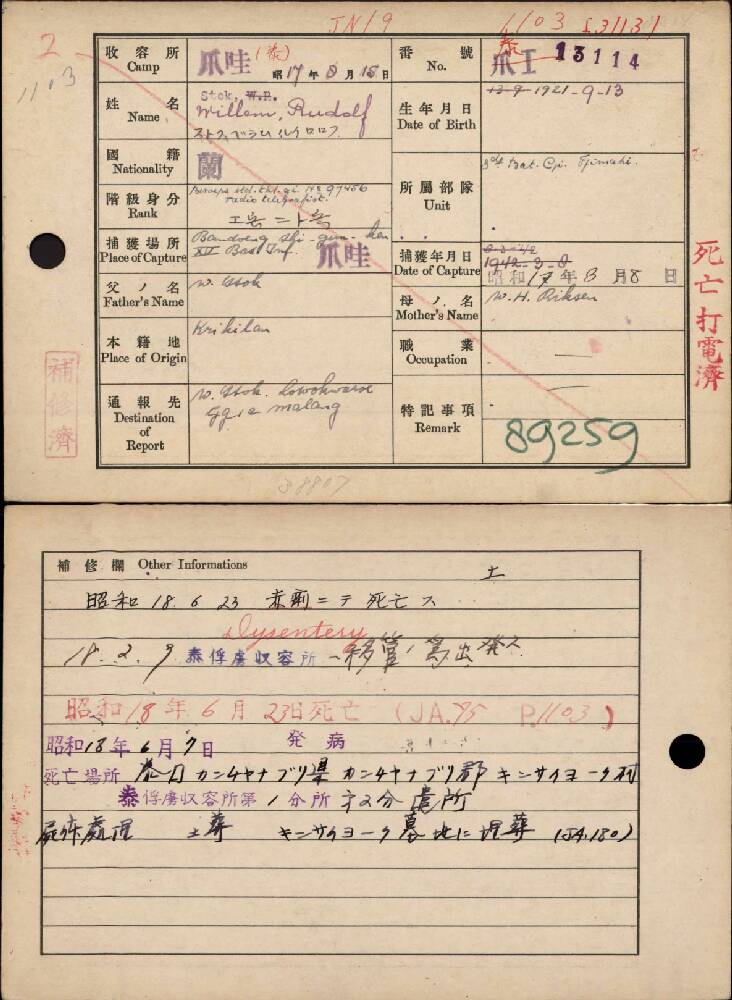 JN19
1103 £31131
2
1103
收容所
Camp
爪哇 (泰)
昭17年8月15日
番號
No.
泰
爪工 13114
姓名
Name
Stok, W.R.
Willem, Rudolf
生年月日
Date of Birth
13-9-1921-9-13
國籍
Nationality
蘭
所屬部隊
Unit
3de Bat. Cie. Tjimahi.
階級身分
Rank
radio telegrafist.
捕獲場所
Place of Capture
Bandoeng
XII Bat Inf.
爪哇
捕獲年月日
Date of Capture
1942-3-8
昭和17年3月8日
父ノ名
Father's Name
W. Stok
母ノ名
Mother's Name
W.H. Riksen
本籍地
Place of Origin
Krikilan
職業
Occupation
—
通報先
Destination
of
Report
W. Stok. Lowokwaroe
Ggie malang
特記事項
Remark
—
89259
死亡打電濟
補修濟
38807
補修欄 Other Informations
土
昭和 18. 6 23 赤痢ニテ死亡ス
Dysentery
18. 2. 9 泰俘虜収容所ヘ移管ノ為出発ス
昭和18年6月23日死亡 (JA.95 P.1103)
昭和18年6月7日 発病
死亡場所 泰国カンチヤナブリ県カンチヤナブリ郡キンサイヨーク村
泰俘虜収容所第1分所 第2分遣所
屍体處理 土葬 キンサイヨーク墓地に埋葬 (JA.180)